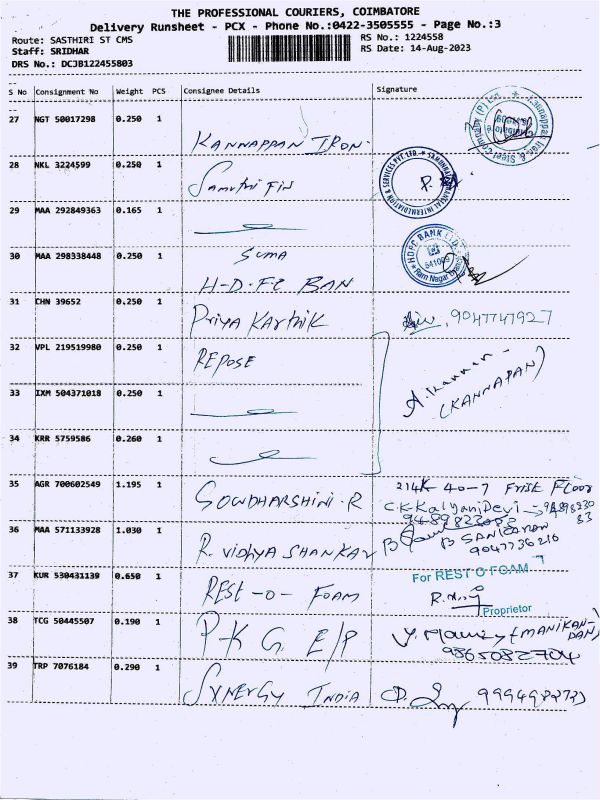 THE PROFESSIONAL COURIERS, COIMBATORE
Delivery Runsheet - PCX - Phone No.:0422-3505555 - Page No.:3
Route: SASTHIRI ST CMS RS No.: 1224558
Staff: SRIDHAR RS Date: 14-Aug-2023
DRS No.: DCJB122455803
S No Consignment No Weight PCS Consignee Details Signature
27 NGT 50017298 0.250 1
KANNAPPAN IRON.
28 NKL 3224599 0.250 1
Samuthi Fin
29 MAA 292849363 0.165 1
30 MAA 298338448 0.250 1 SUMA
HDFC BANK LTD.
641009
Ram Nagar Branch
H-D-FC BAN
31 CHN 39652 0.250 1
Priya Karthik 9047747927
32 VPL 219519980 0.250 1 REPOSE
(KANNAPAN)
33 IXM 504371018 0.250 1
34 KRR 5759586 0.260 1
35 AGR 700602549 1.195 1 214K 40-7 Frist Floor
GOWDHARSHINI-R CK-Kalyani Devi
36 MAA 571133928 1.030 1
R. VIDHYA SHANKAR B SANKARAN
9047736216
37 KUR 530431139 0.650 1 For REST O FOAM
REST-O- FOAM
Proprietor
38 TCG 50445507 0.190 1
P-K G. E/P (MANIKANDAN)
9865082704
39 TRP 7076184 0.290 1
SYNERGY INDIA